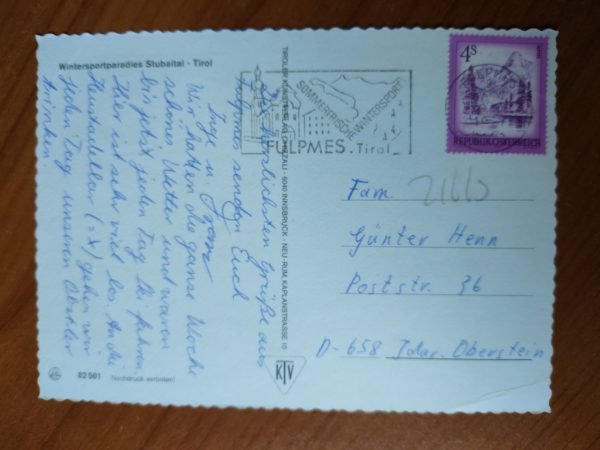 Wintersportparadies Stubaital - Tirol
Die herzlichsten Grüße aus
Fulpmes senden Euch
Inge u.
Wir hatten die ganze Woche
schönes Wetter und waren
bis jetzt jeden Tag Ski fahren.
Hier ist sehr viel los. An die
Heustadelbar (=X) gehen wir
jeden Tag unseren Obstler
trinken.
82501 Nachdruck verboten!
TIROLER KUNSTVERLAG CHIZZALI · 6040 INNSBRUCK - NEU-RUM, KAPLANSTRASSE 10
KTV
SOMMERFRISCHE WINTERSPORT
FULPMES · Tirol
4S
REPUBLIK ÖSTERREICH
Fam.
Günter Henn
Poststr. 36
D-658 Idar-Oberstein